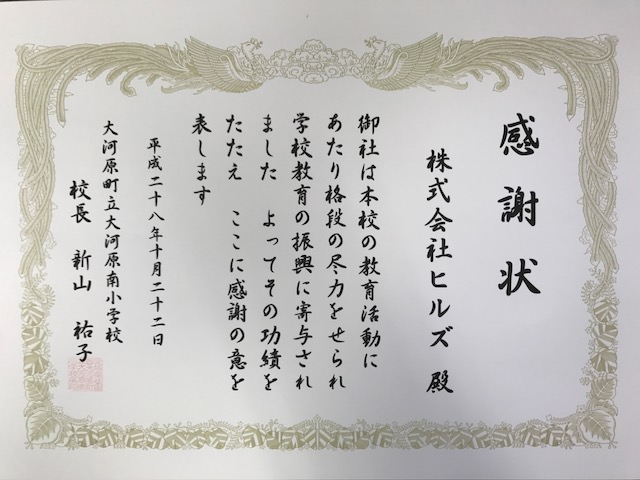 感謝状
株式会社ヒルズ 殿
御社は本校の教育活動に
あたり格段の尽力をせられ
学校教育の振興に寄与され
ました よってその功績を
たたえ ここに感謝の意を
表します
平成二十八年十月二十二日
大河原町立大河原南小学校
校長 新山 祐子